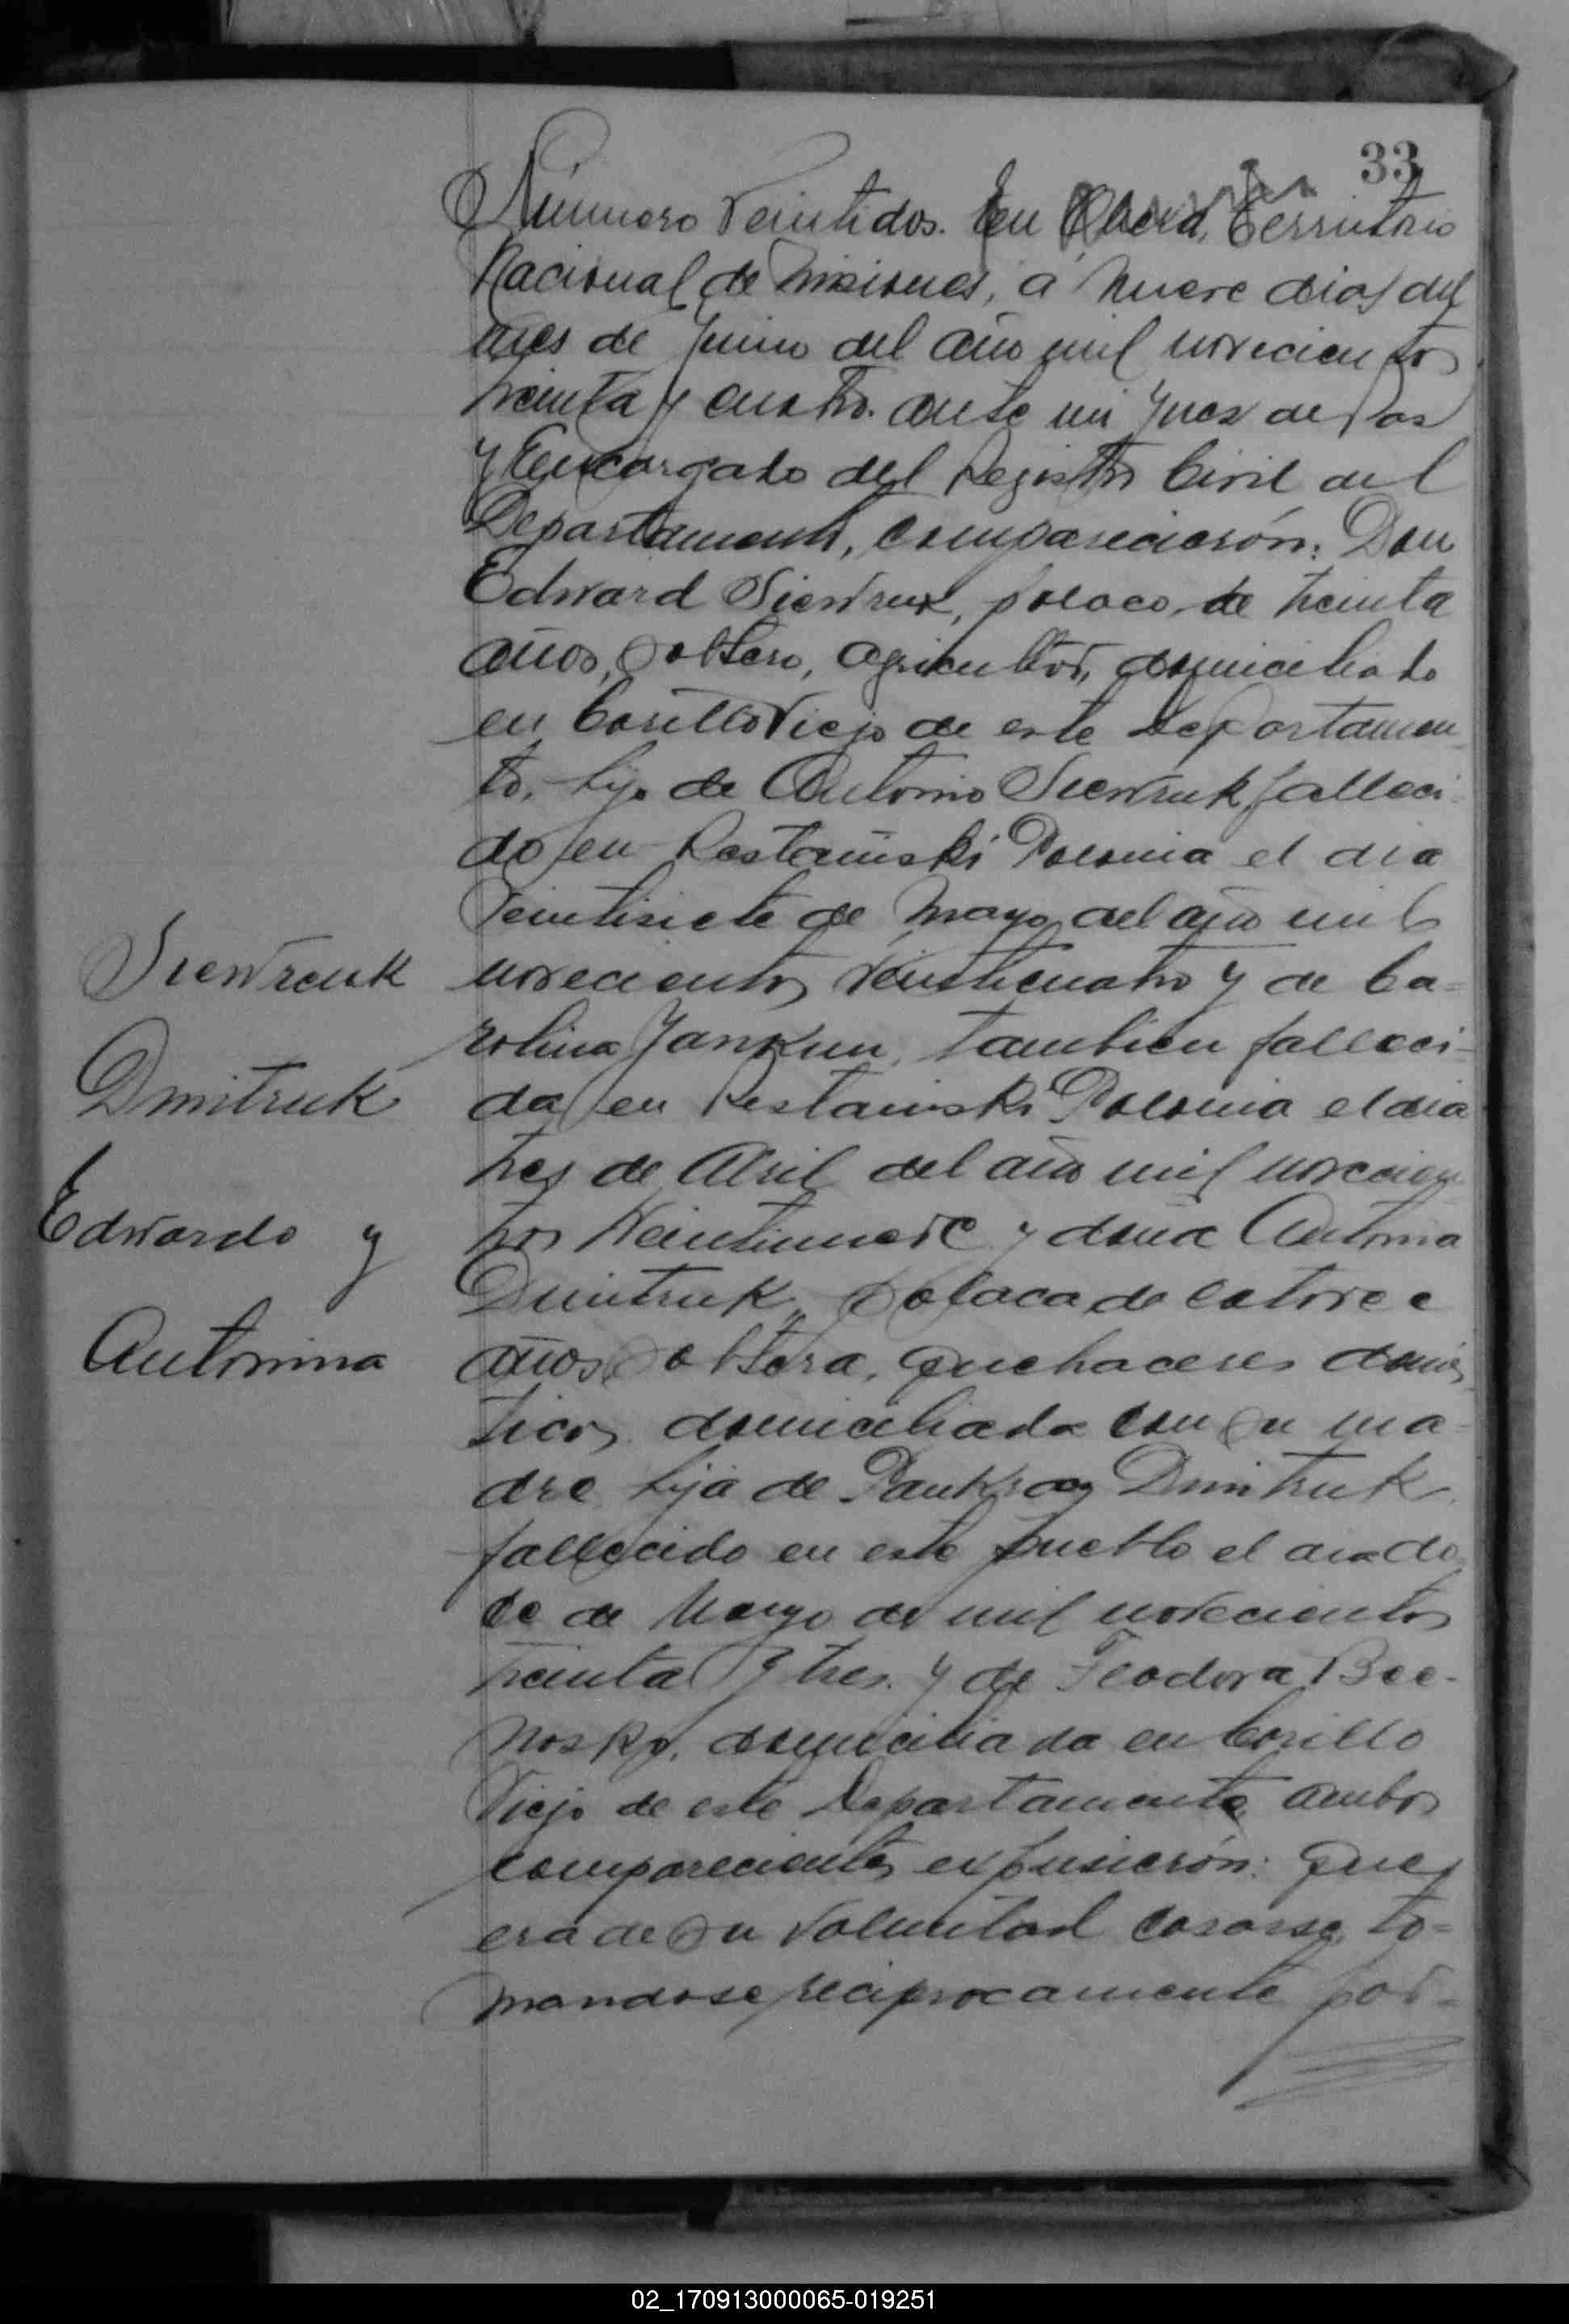 33
Número Veintidos. En Oberá, Territorio
Nacional de Misiones, á nueve dias del
mes de Junio del año mil novecientos
treinta y cuatro. ante mi Juez de Paz
y Encargado del Registro Civil del
Departamento, comparecieron: Don
Edward Siewruk, polaco, de treinta
años, Soltero, agricultor, domiciliado
en Cerillo Viejo de este Departamen-
to, hijo de Antonio Siewruk, falleci-
do en Polonia el dia
Veintisiete de Mayo del año mil
novecientos veinticuatro y de Ca-
rolina Jankun, tambien falleci-
da en Polonia el dia
tres de Abril del año mil novecien-
tos Veintinueve y doña Antonia
Dmitruk, polaca de catorce
años, Soltera, quehaceres domés-
ticos, domiciliada con su ma-
dre hija de Pankracy Dmitruk
fallecido en este pueblo el dia do-
ce de Marzo de mil novecientos
treinta y tres. y de Teodora
domiciliada en Cerillo
Viejo de este Departamento, ambos
comparecientes expusieron: que
era de su voluntad casarse, to-
mandose reciprocamente por-
Siewruk
Dmitruk
Edwardo y
Antonina
02_170913000065-019251